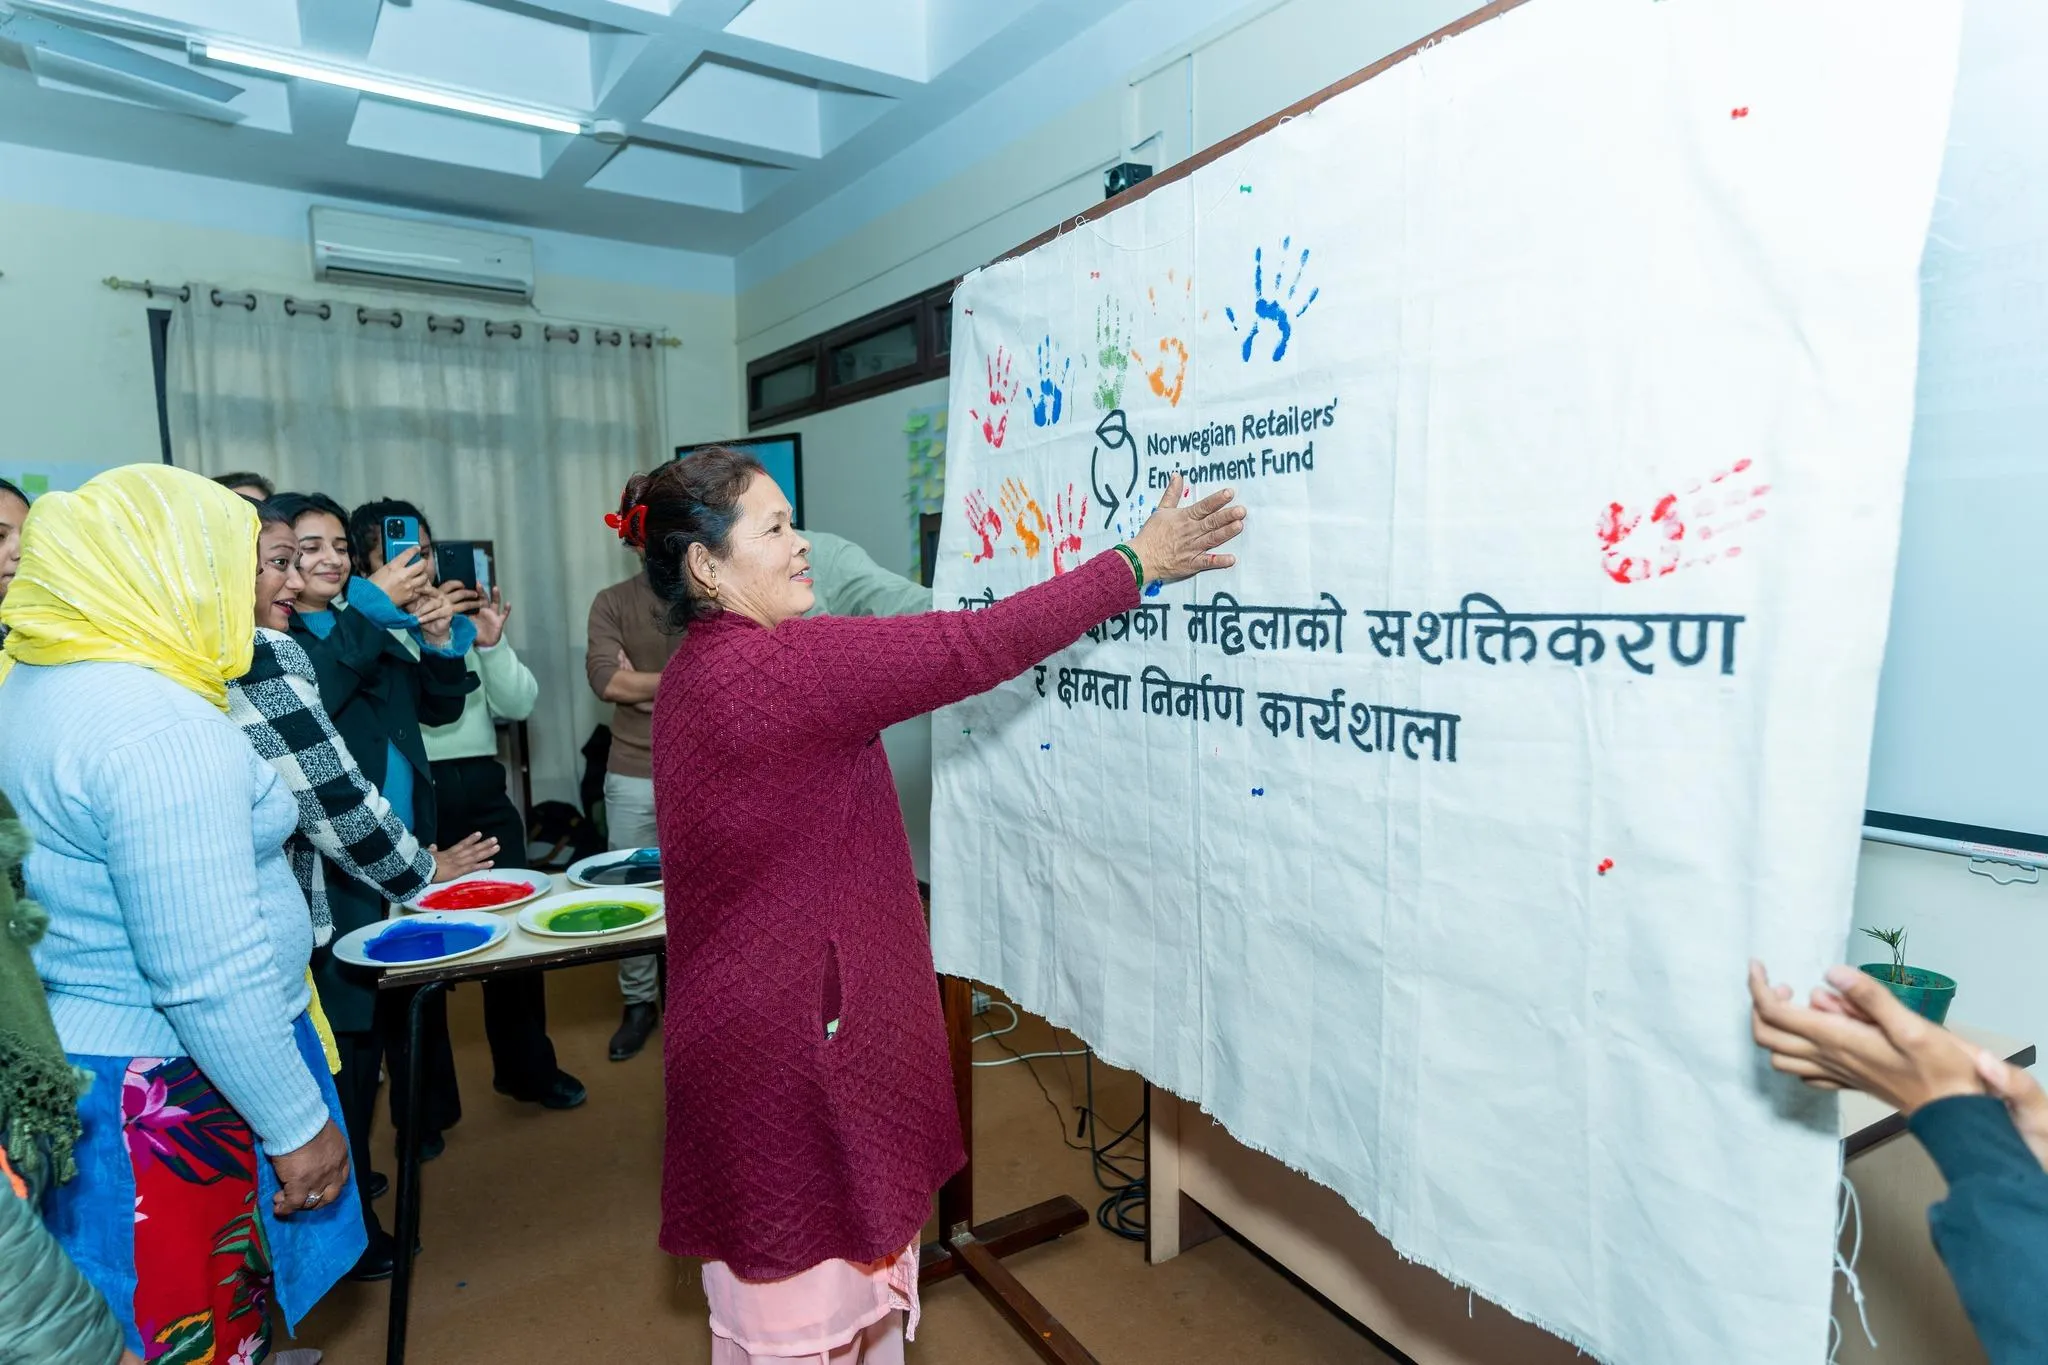 Norwegian Retailers'
Environment Fund
महिलाको सशक्तिकरण
र क्षमता निर्माण कार्यशाला